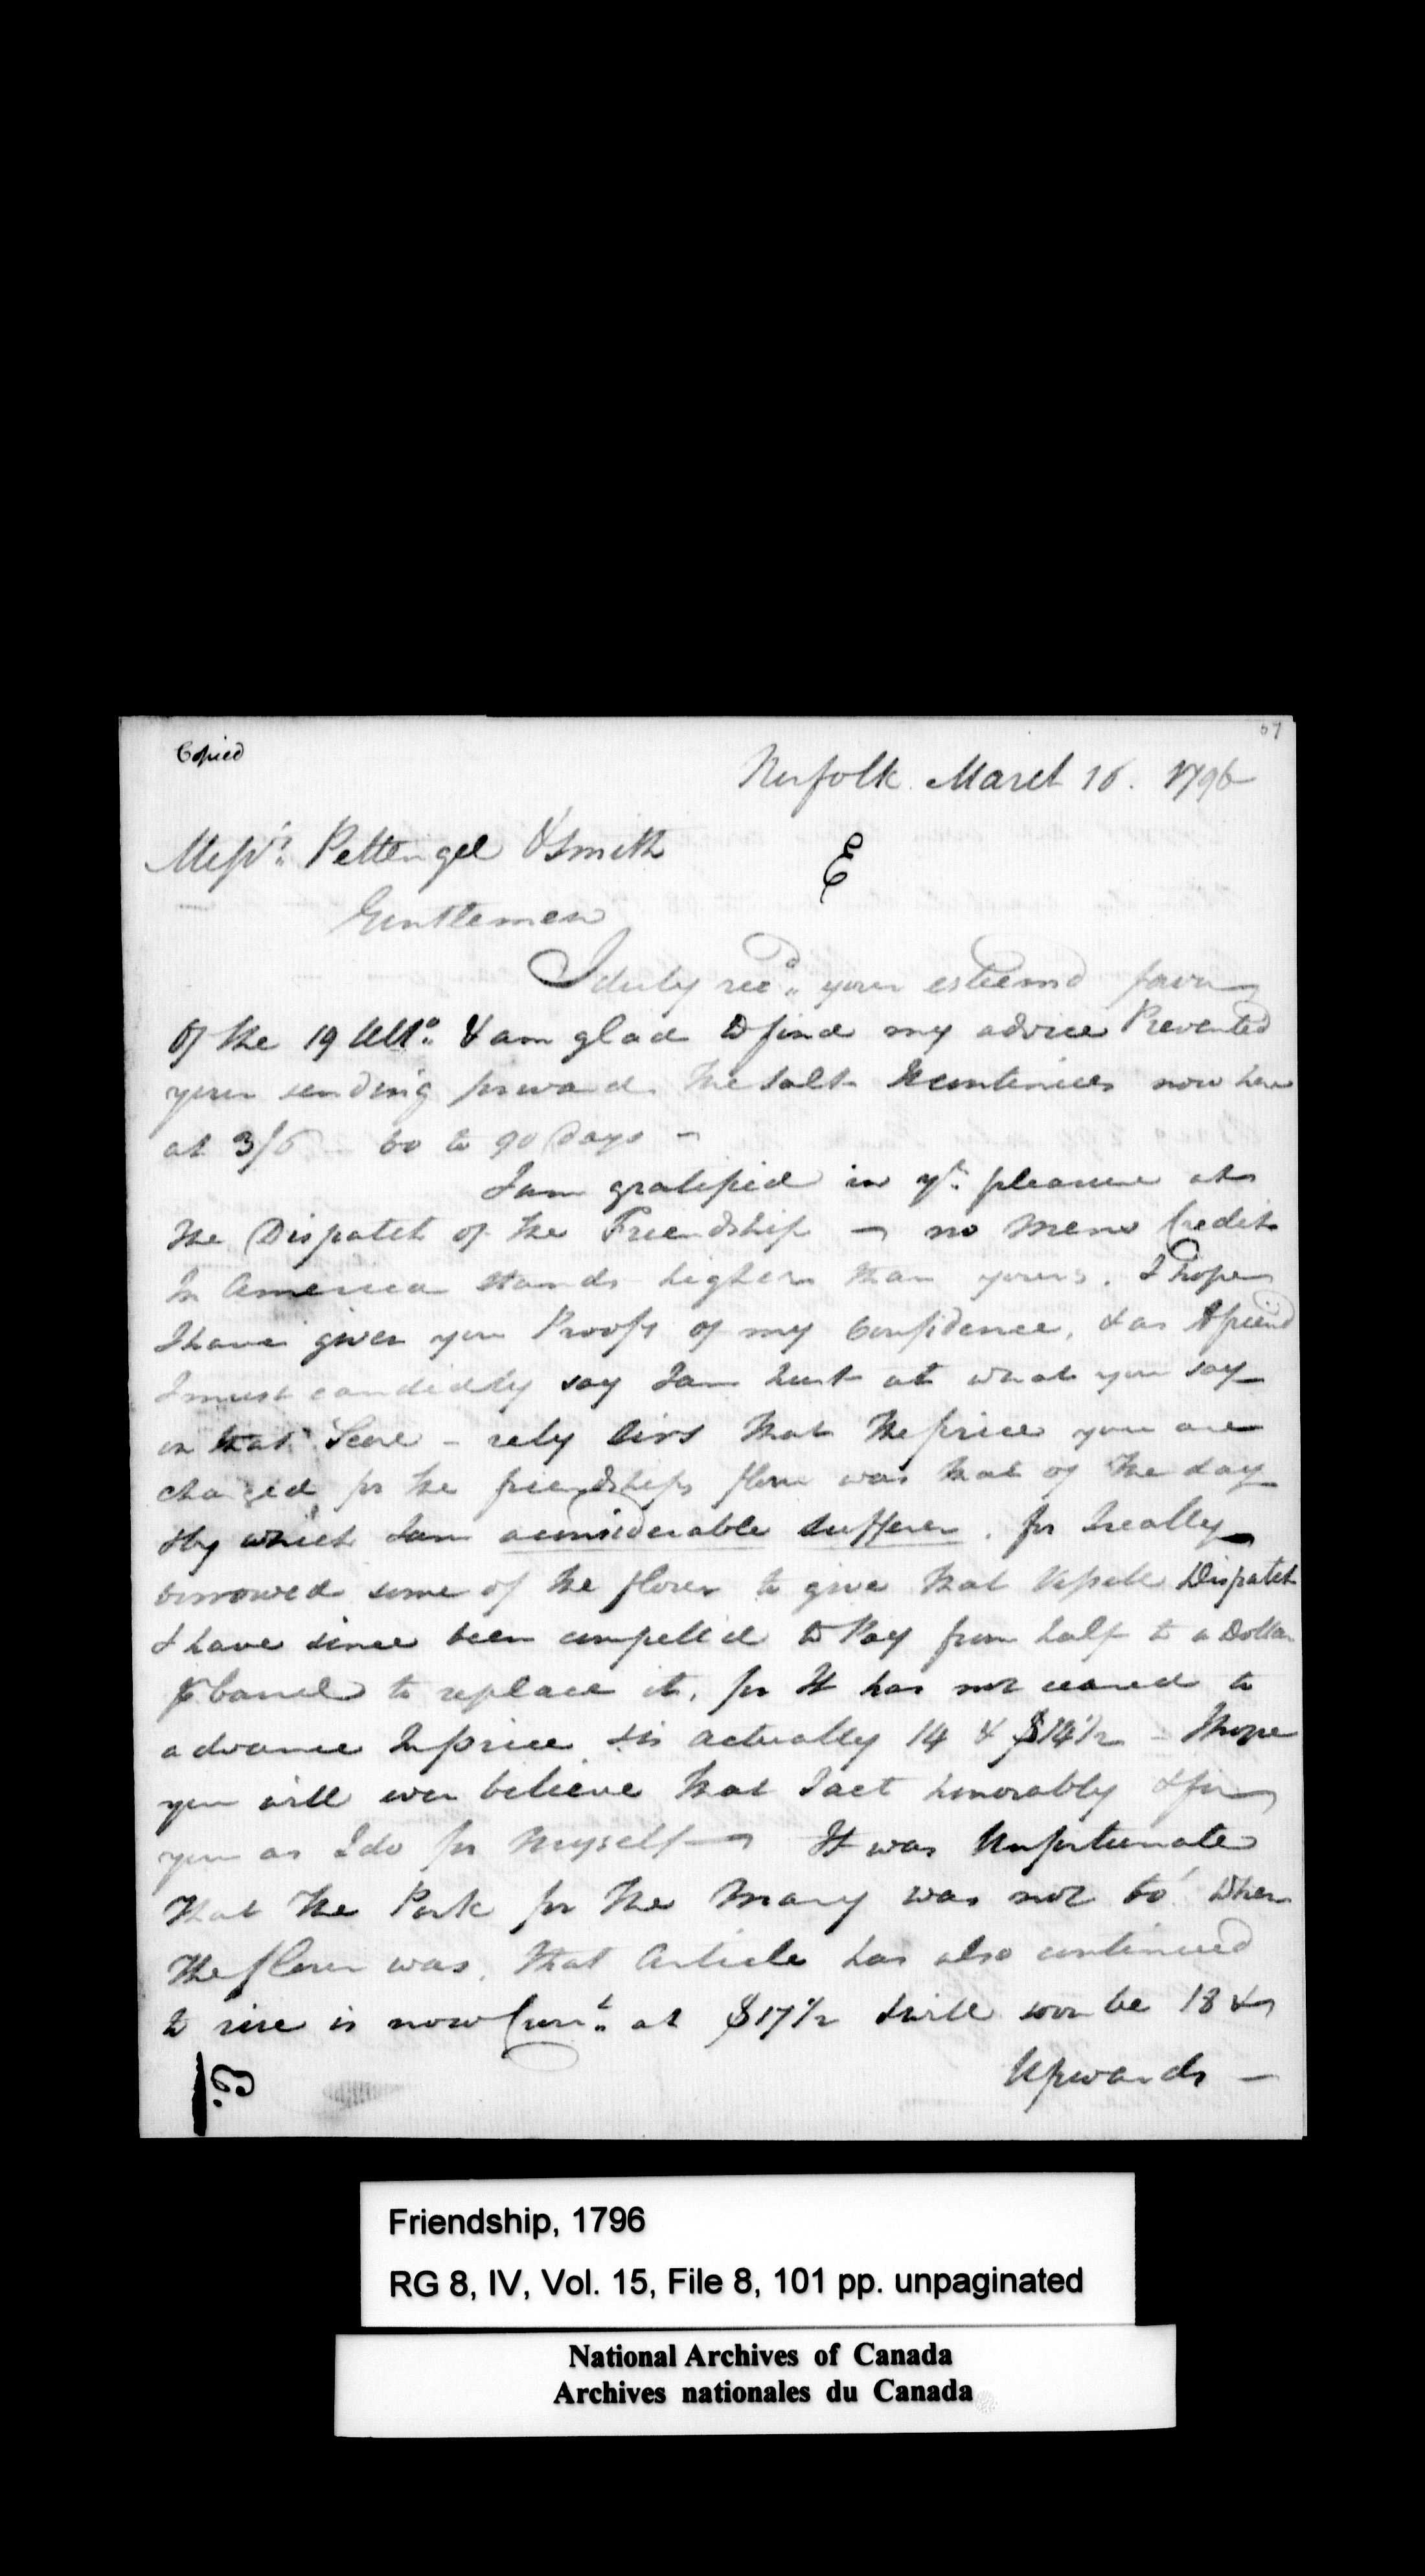 57
Copied
Norfolk. March 16. 1796
Messrs. Pettengel & Smith
E
Gentlemen
I duly recd. your esteemd favor
Of the 19 Ulto. & am glad to find my advice Prevented
your sending forward the salt It continues now here
at 3/6 – 60 to 90 days –
I am gratified in yr. pleasure at
the Dispatch of the Friendship – no Mens Credit
In America stands higher than yours. I hope
I have given you Proofs of my Confidence, & as A friend
I must candidly say I am hurt at what you say
on that Score – rely Sirs that the price you are
charged for the friendships flour was that of the day
& by which I am a considerable sufferer. for I really
borrowed some of the flour to give that Vessell Dispatch
& have since been compell'd to Pay from half to a Dollar
⅌ barrel to replace it, for It has not ceased to
advance In price & is actually 14 & $14½ – I hope
you will ever believe that I act honorably & for
you as I do for Myself – It was Unfortunate
that the Pork for the Mary was not bo't when
the flour was, that Article has also continued
to rise is now Currt. at $17½ & will soon be 18 &
Upwards –
Friendship, 1796
RG 8, IV, Vol. 15, File 8, 101 pp. unpaginated
National Archives of Canada
Archives nationales du Canada